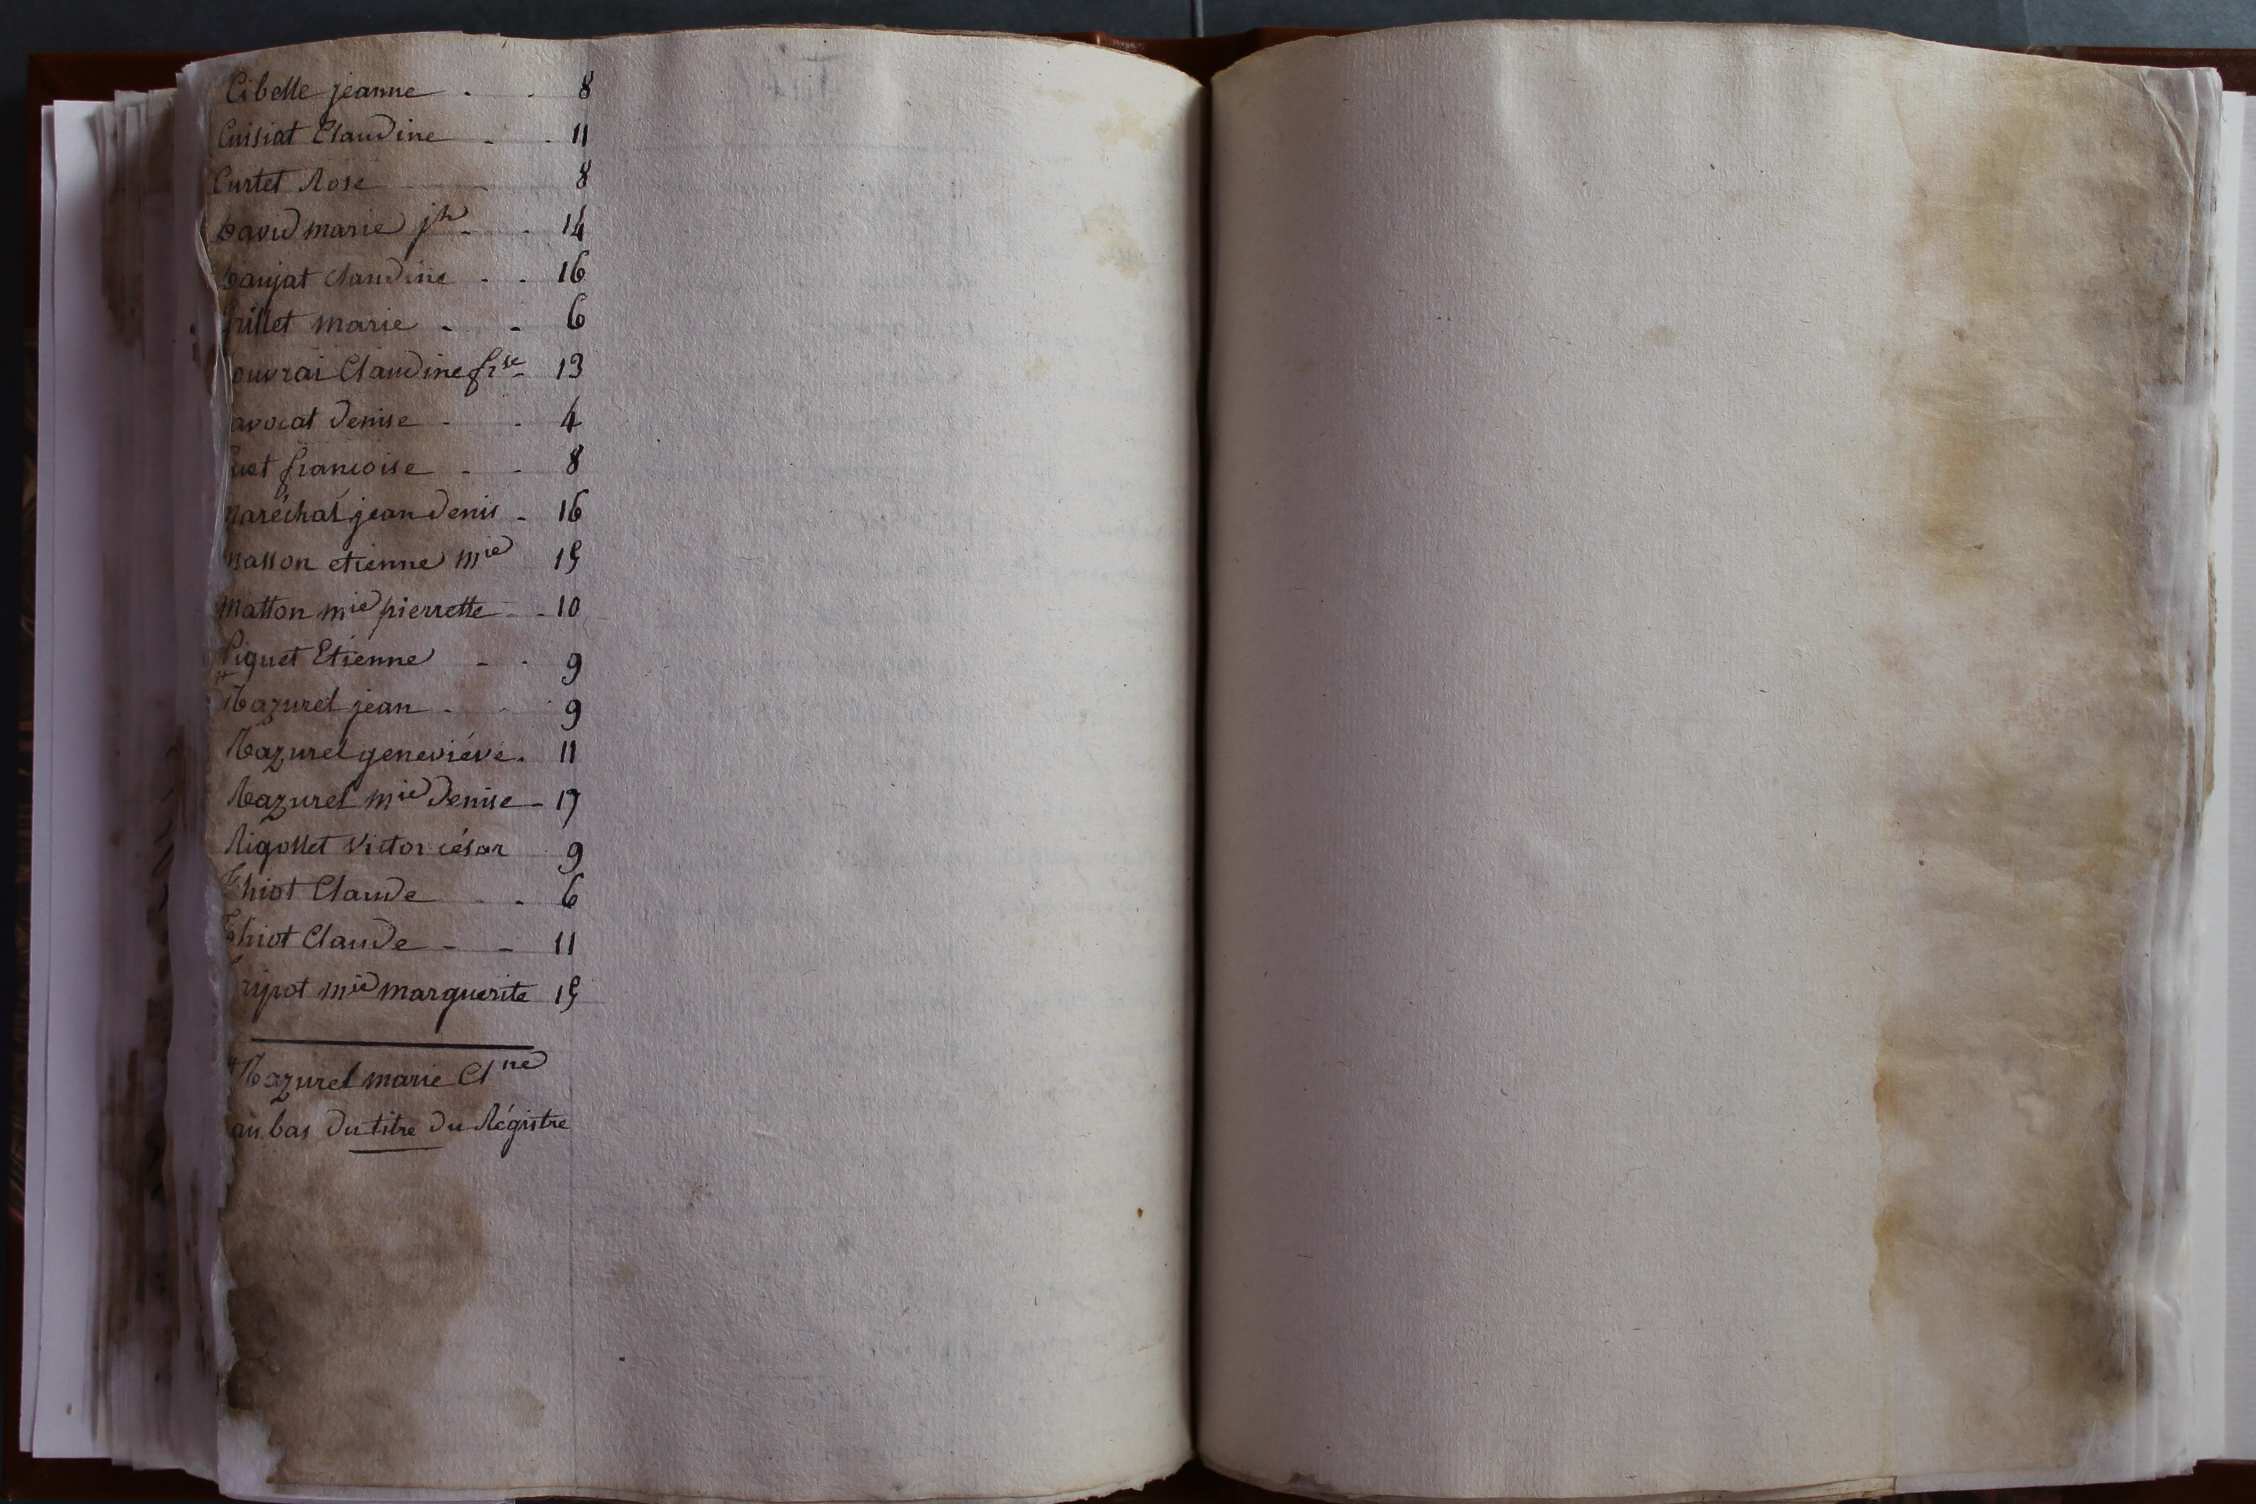 Cibelle jeanne - - 8
Cuisiat Claudine - - 11
Curtet Rose 8
David marie jh - - 14
Danjat Claudine - - 16
Jrillet marie - - 6
ouvrai Claudine frse - 13
avocat denise - - 4
uet francoise - - 8
Maréchal jean denis - 16
Masson etienne mie 15
Matton mie pierrette - 10
Piguet Etienne - - 9
# Razurel jean - - 9
Razurel geneviéve - 11
Razurel mie denise - 17
Rigollet victor césar 9
Thiot Claude - - 6
Thiot Claude - - 11
mie marguerite 15
# Razurel marie Clne
au bas du titre du Régistre